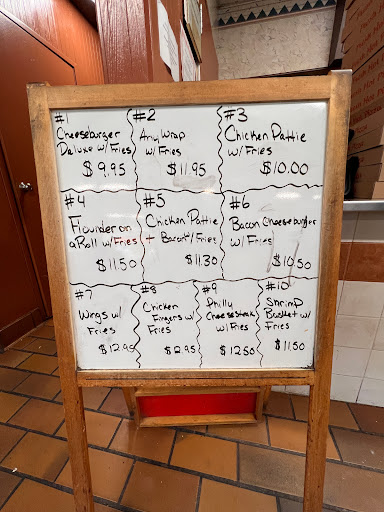 #1
Cheeseburger
Deluxe w/Fries
$9.95
#2
Any Wrap
w/ Fries
$11.95
#3
Chicken Pattie
w/ Fries
$10.00
#4
Flounder on
a Roll w/Fries
$11.50
#5
Chicken Pattie
+ Bacon w/Fries
$11.30
#6
Bacon Cheeseburger
w/ Fries
$10.50
#7
Wngs w/
Fries
$12.95
#8
Chicken
Fingers w/
Fries
$2.95
#9
Philly
Cheesesteak
w/ Fries
$12.50
#10
Shrimp
Basket w/
Fries
$11.50